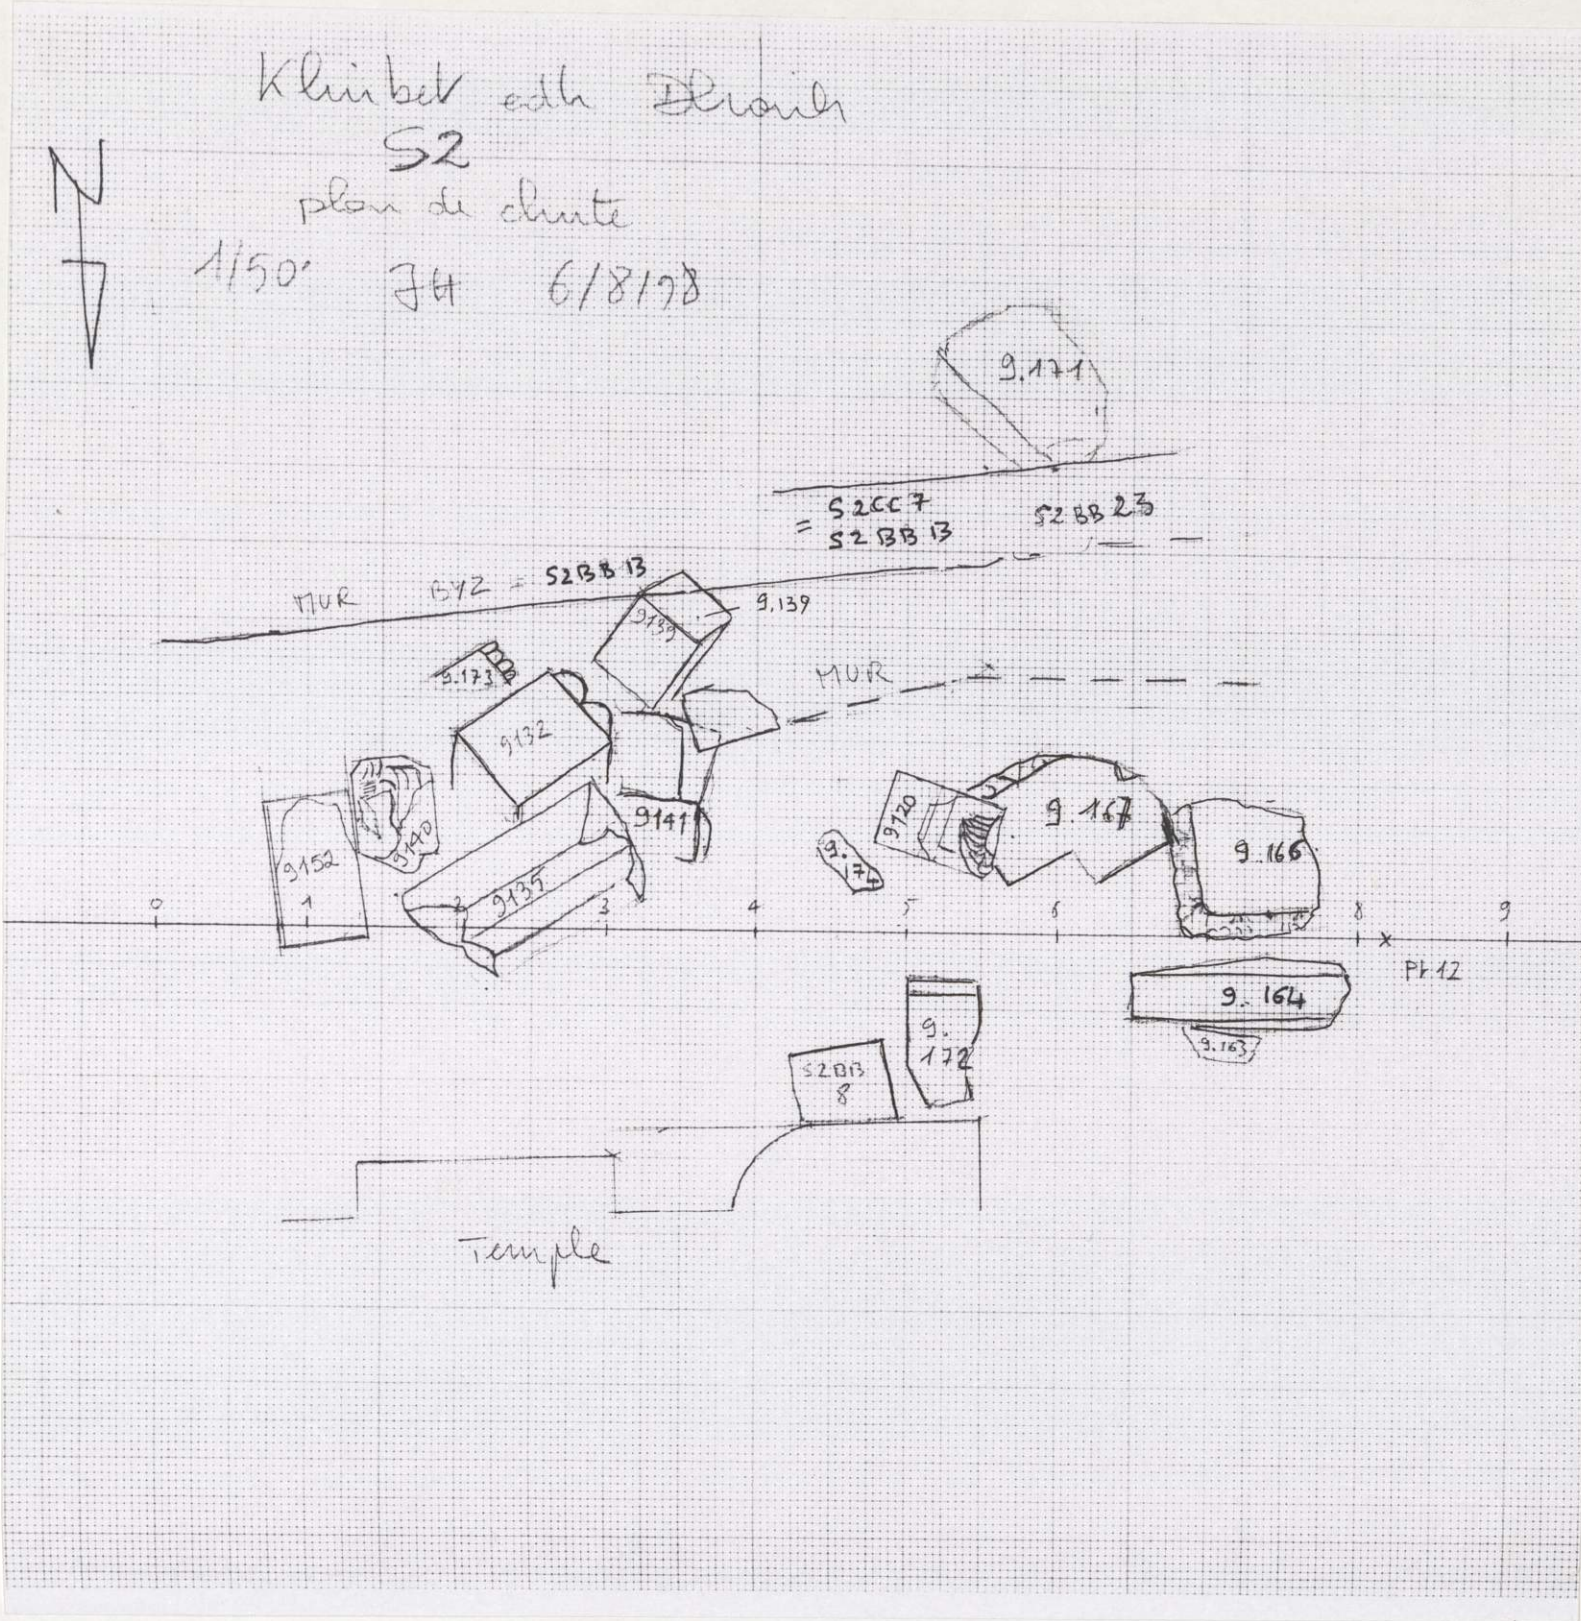 Khirbet edh Dharih
S2
plan de chute
N
1/50e JH 6/8/98
9.171
= S2CC7
S2BB13
S2BB23
MUR BYZ = S2BB13
9139
9.139
9.173
MUR
9132
9140
9152
9141
9135
9120
9.167
9.174
9.166
0 1 2 3 4 5 6 8 9
Pt 12
9.164
9.163
9.172
S2BB
8
Temple